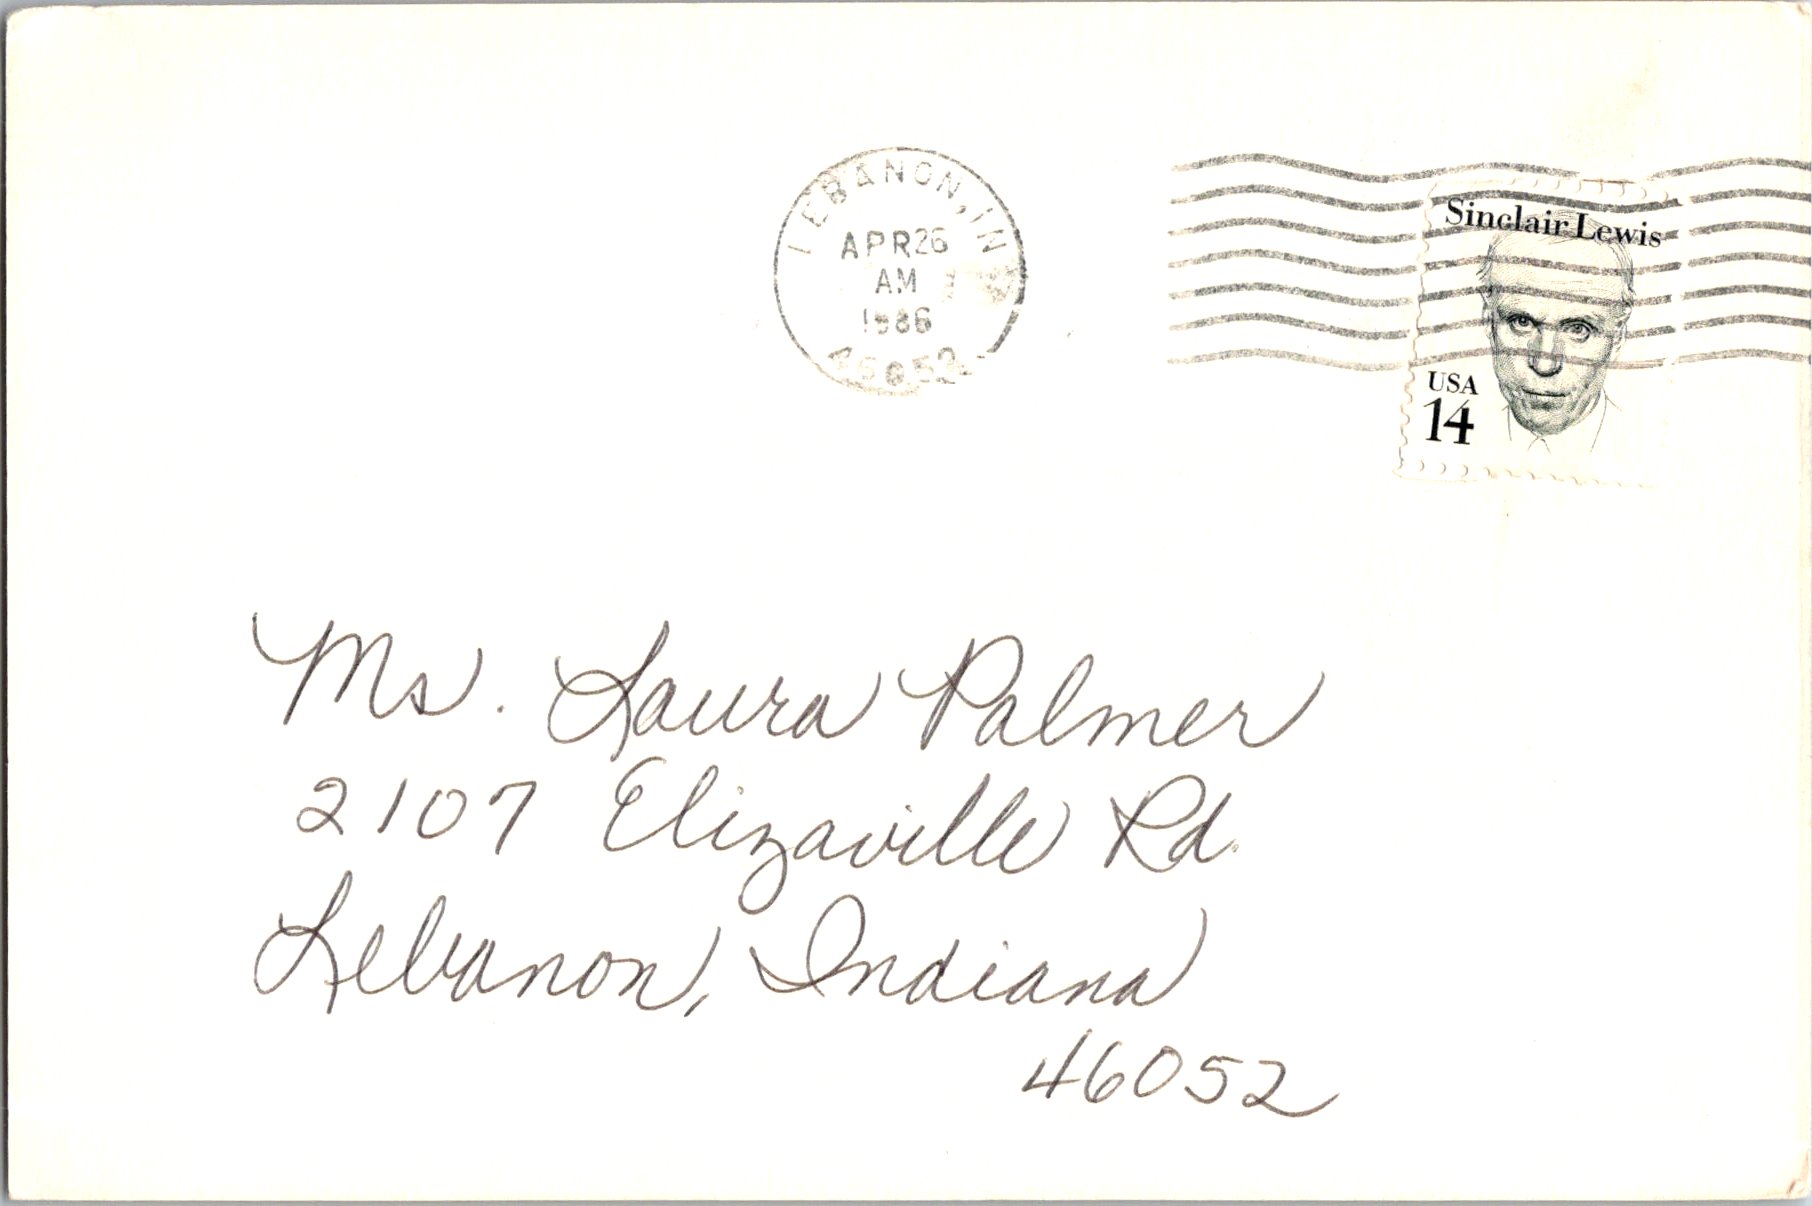 LEBANON, IN
APR 26
AM
1986
46052
Sinclair Lewis
USA
14
Ms. Laura Palmer
2107 Elizaville Rd.
Lebanon, Indiana
46052